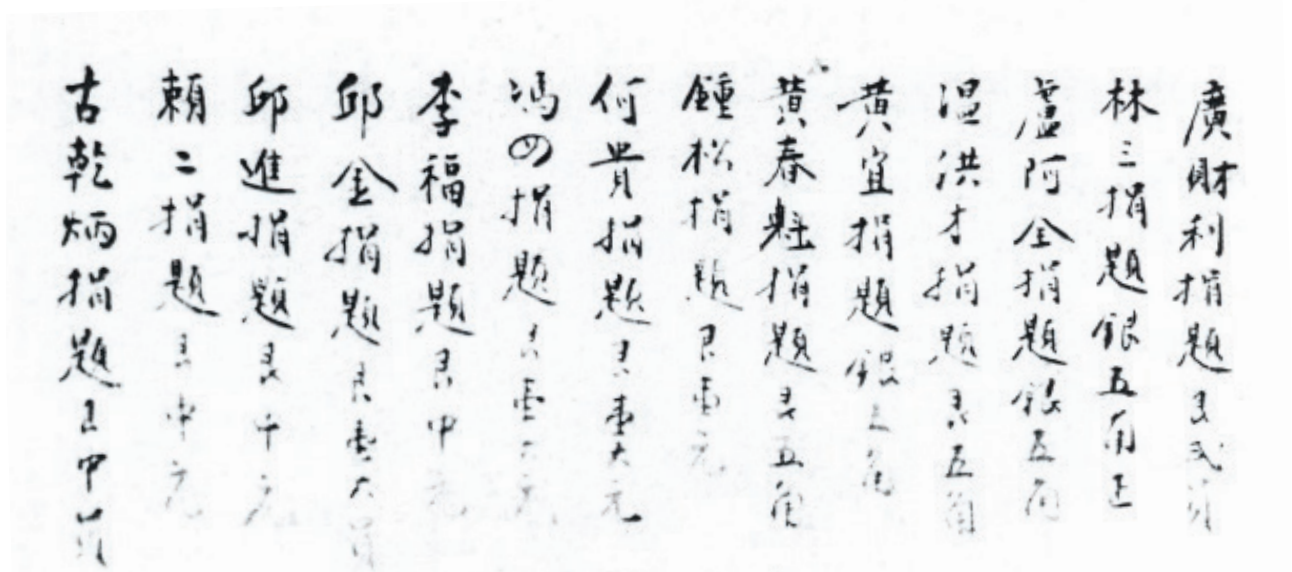 廣財利捐題艮弍
林三捐題銀五角正
盧阿全捐題銀五角
温洪才捐題艮五角
黄宜捐題銀五角
黄春魁捐題艮五角
鍾松捐題艮壹元
何貴捐題艮壹大元
馮四捐題艮壹大元
李福捐題艮中元
邱金捐題艮壹大員
邱進捐題艮中元
賴二捐題艮中元
古乾炳捐題艮中員